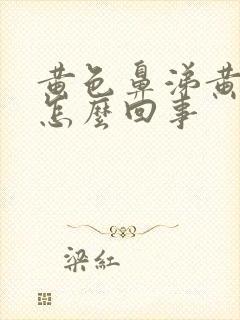 黄色鼻涕黄
怎麼回事
梁紅